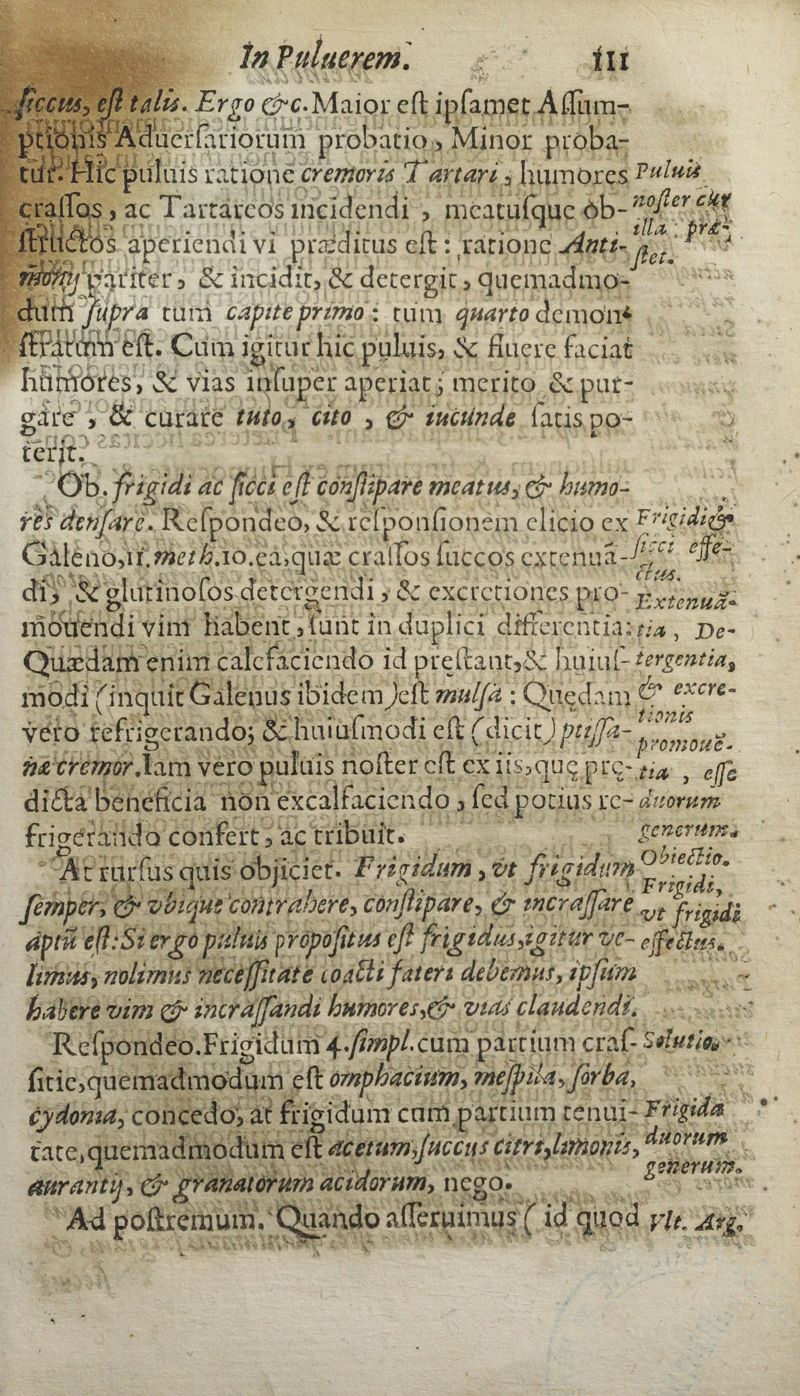 In Puluerem. 111
ſiccus, eſt talis. Ergo &c. Maior eſt ipſamet Aſſum-
ptionis Aduerſariorum probatio, Minor proba-
tur. Hic puluis ratione cremoris Tartari, humores
craſſos, ac Tartareos incidendi, meatuſque ob-
ſtructos aperiendi vi præditus eſt: ratione Anti-
monij pariter, & incidit, & detergit, quemadmo-
dum ſupra tum capite primo: tum quarto demon-
ſtratum eſt. Cum igitur hic puluis, & fluere faciat
humores, & vias inſuper aperiat; merito & pur-
gare, & curare tuto, cito, & iucunde ſatis po-
terit.
Puluis
noſter cur
illa præ-
ſtet.
Ob. frigidi ac ſicci eſt conſtipare meatus, & humo-
res denſare. Reſpondeo, & reſponſionem elicio ex
Galeno, 11. meth. 10. ea, quæ craſſos ſuccos extenuā-
di, & glutinoſos detergendi, & excretiones pro-
mouendi vim habent, ſunt in duplici differentia:
Quædam enim calefaciendo id preſtant, & huiuſ-
modi (inquit Galenus ibidem) eſt mulſa: Quędam
vero refrigerando; & huiuſmodi eſt (dicit) ptiſſa-
næ cremor. Iam vero puluis noſter eſt ex iis, quę prę-
dicta beneficia non excalfaciendo, ſed potius re-
frigerando confert, ac tribuit.
Frigidi &
ſicci effe-
ctus.
Extenuā-
tia, De-
tergentia,
& excre-
tionis
promouē-
tia, eſſe
duorum
generum.
At rurſus quis objiciet. Frigidum, vt frigidum
ſemper, & vbique contrahere, conſtipare, & incraſſare
aptū eſt: Si ergo puluis propoſitus eſt frigidus, igitur ve-
limus, nolimus neceſſitate coacti fateri debemus, ipſum
habere vim & incraſſandi humores, & vias claudendi.
Obiectio.
Frigidi,
vt frigidi
effectus.
Reſpondeo. Frigidum 4. ſimpl. cum partium craſ-
ſitie, quemadmodum eſt omphacium, meſpila, ſorba,
cydonia, concedo, at frigidum cum partium tenui-
tate, quemadmodum eſt acetum, ſuccus citri, limonis,
aurantij, & granatorum acidorum, nego.
Solutio.
Frigida
duorum
generum.
Ad poſtremum. Quando aſſeruimus (id quod
Vlt. Arg.